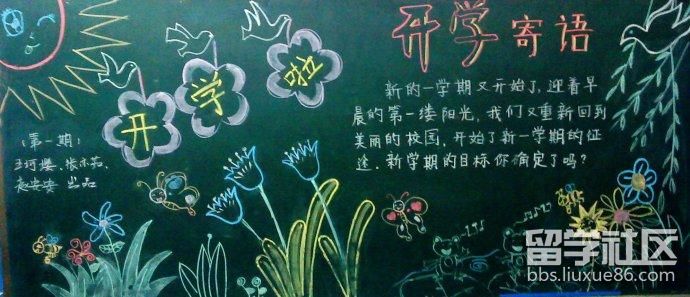 开学寄语
开学啦
新的一学期又开始了，迎着早
晨的第一缕阳光，我们又重新回到
美丽的校园，开始了新一学期的征
途．新学期的目标你确定了吗？
（第一期）
出品
留学社区
bbs.liuxue86.com